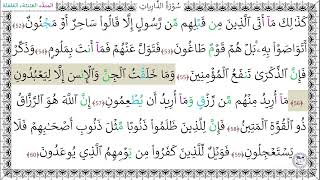 سُورَةُ الذَّارِيَاتِ
كَذَٰلِكَ مَا أَتَى الَّذِينَ مِن قَبْلِهِم مِّن رَّسُولٍ إِلَّا قَالُوا سَاحِرٌ أَوْ مَجْنُونٌ (52)
أَتَوَاصَوْا بِهِ ۚ بَلْ هُمْ قَوْمٌ طَاغُونَ (53) فَتَوَلَّ عَنْهُمْ فَمَا أَنتَ بِمَلُومٍ (54) وَذَكِّرْ
فَإِنَّ الذِّكْرَىٰ تَنفَعُ الْمُؤْمِنِينَ (55) وَمَا خَلَقْتُ الْجِنَّ وَالْإِنسَ إِلَّا لِيَعْبُدُونِ
(56) مَا أُرِيدُ مِنْهُم مِّن رِّزْقٍ وَمَا أُرِيدُ أَن يُطْعِمُونِ (57) إِنَّ اللَّهَ هُوَ الرَّزَّاقُ
ذُو الْقُوَّةِ الْمَتِينُ (58) فَإِنَّ لِلَّذِينَ ظَلَمُوا ذَنُوبًا مِّثْلَ ذَنُوبِ أَصْحَابِهِمْ فَلَا
يَسْتَعْجِلُونِ (59) فَوَيْلٌ لِّلَّذِينَ كَفَرُوا مِن يَوْمِهِمُ الَّذِي يُوعَدُونَ (60)